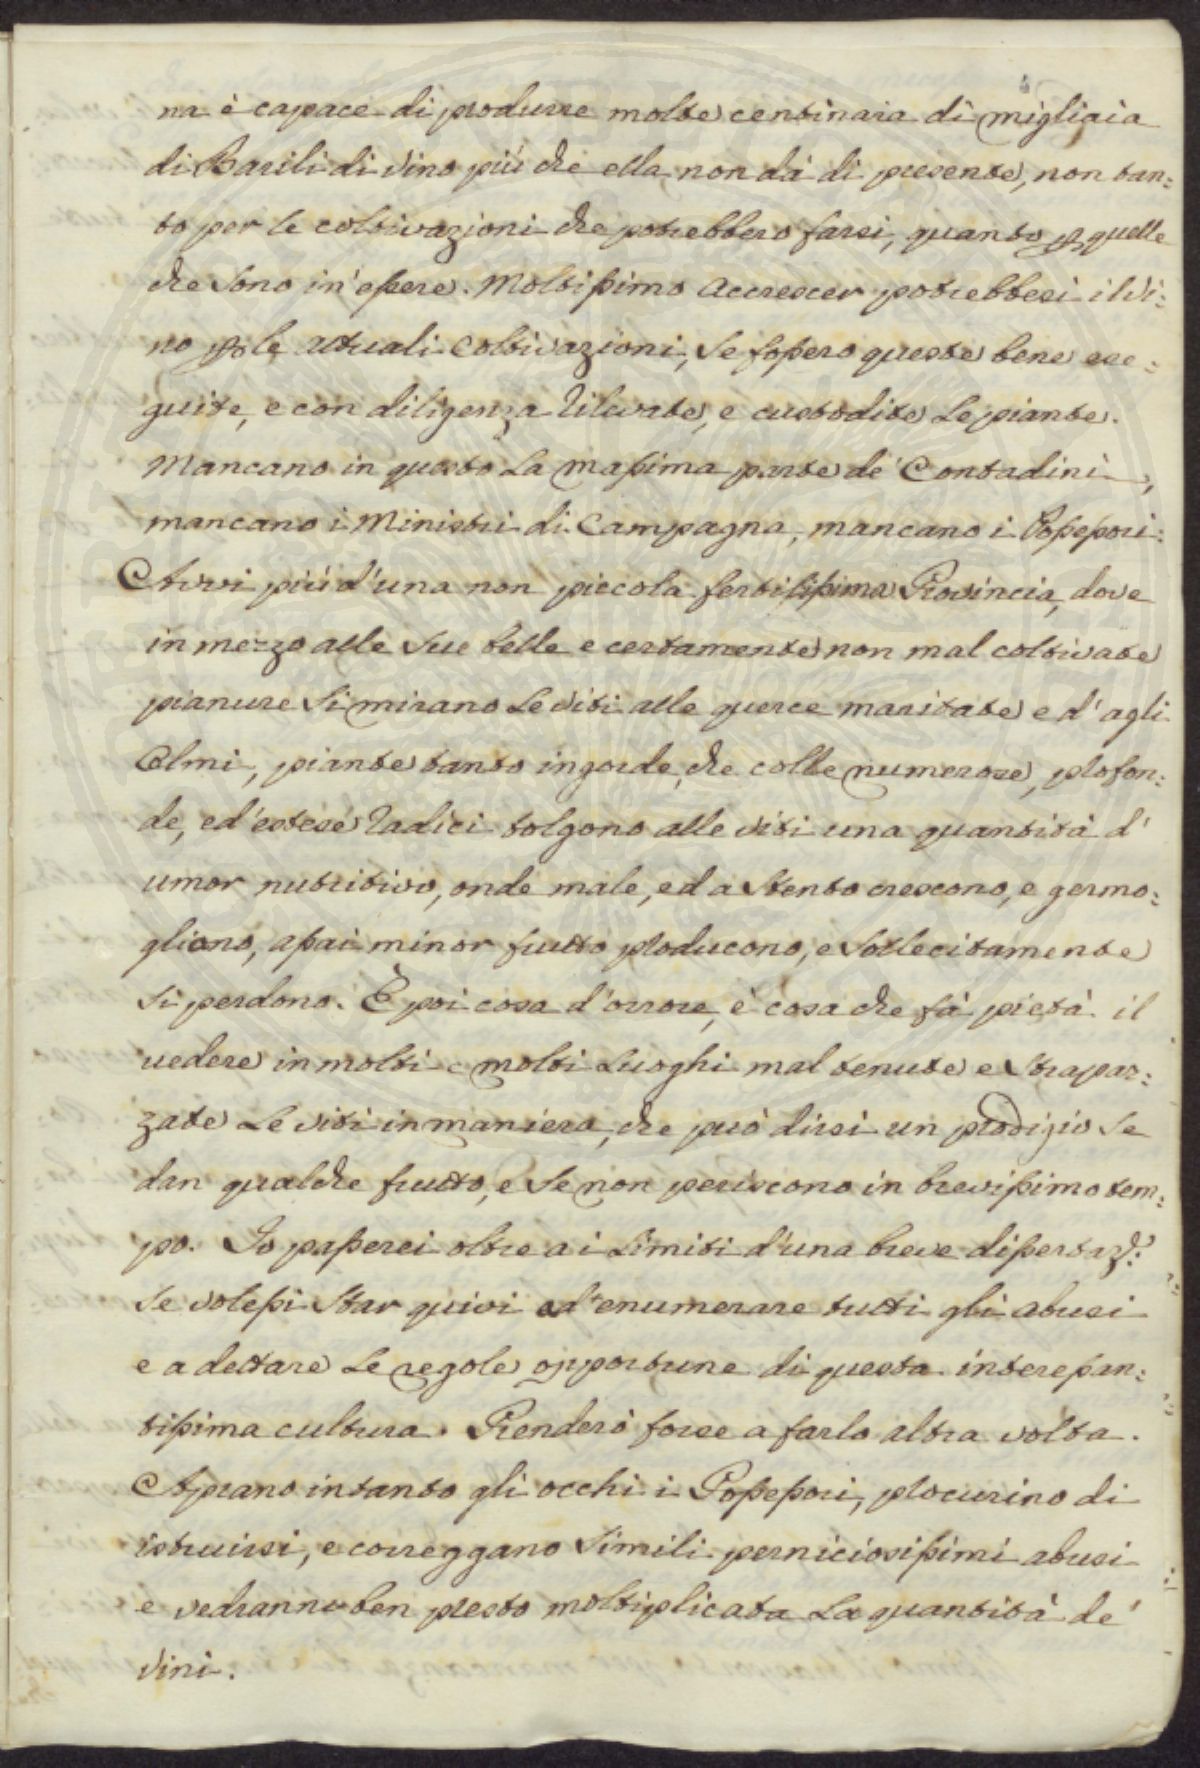 na è capace di produrre molte centinaia di migliaia
di Barili di vino più che ella non dà di presente, non tan:
to per le coltivazioni che potrebbero farsi, quanto p quelle
che sono in'essere. Moltissimo accrescer potrebbesi il Vi:
no p le attuali Coltivazioni, se fossero queste bene ese:
guite, e con diligenza rilevate, e custodite le piante.
Mancano in questo la massima parte de' Contadini,
mancano i Ministri di Campagna, mancano i Possessori:
Avvi più d'una non piccola fertilissima Provincia, dove
in mezzo alle sue belle e certamente non mal coltivate
pianure si mirano le viti alle querce maritate e d'agli
Olmi, piante tanto ingorde, che colle numerose, profon:
de, ed'estese radici tolgono alle viti una quantità d'
umor nutritivo, onde male, ed a stento crescono, e germo:
gliano, assai minor frutto producono, e sollecitamente
si perdono. È poi cosa d'orrore, è cosa che fà pietà il
vedere in molti e molti Luoghi mal tenute e strapaz:
zate le viti in maniera, che può dirsi un prodigio se
dan qualche frutto, e se non periscono in brevissimo tem:
po. Io passerei oltre a i limiti d'una breve dissertaz.e:
se volessi star quivi ad'enumerare tutti gli abusi
e a dettare le regole opportune di questa interessan:
tissima cultura. Prenderò forse a farlo altra volta.
Aprano intanto gli occhi i Possessori, procurino di
istruirsi, e correggano simili perniciosissimi abusi
e vedranno ben presto moltiplicata la quantità de'
vini.